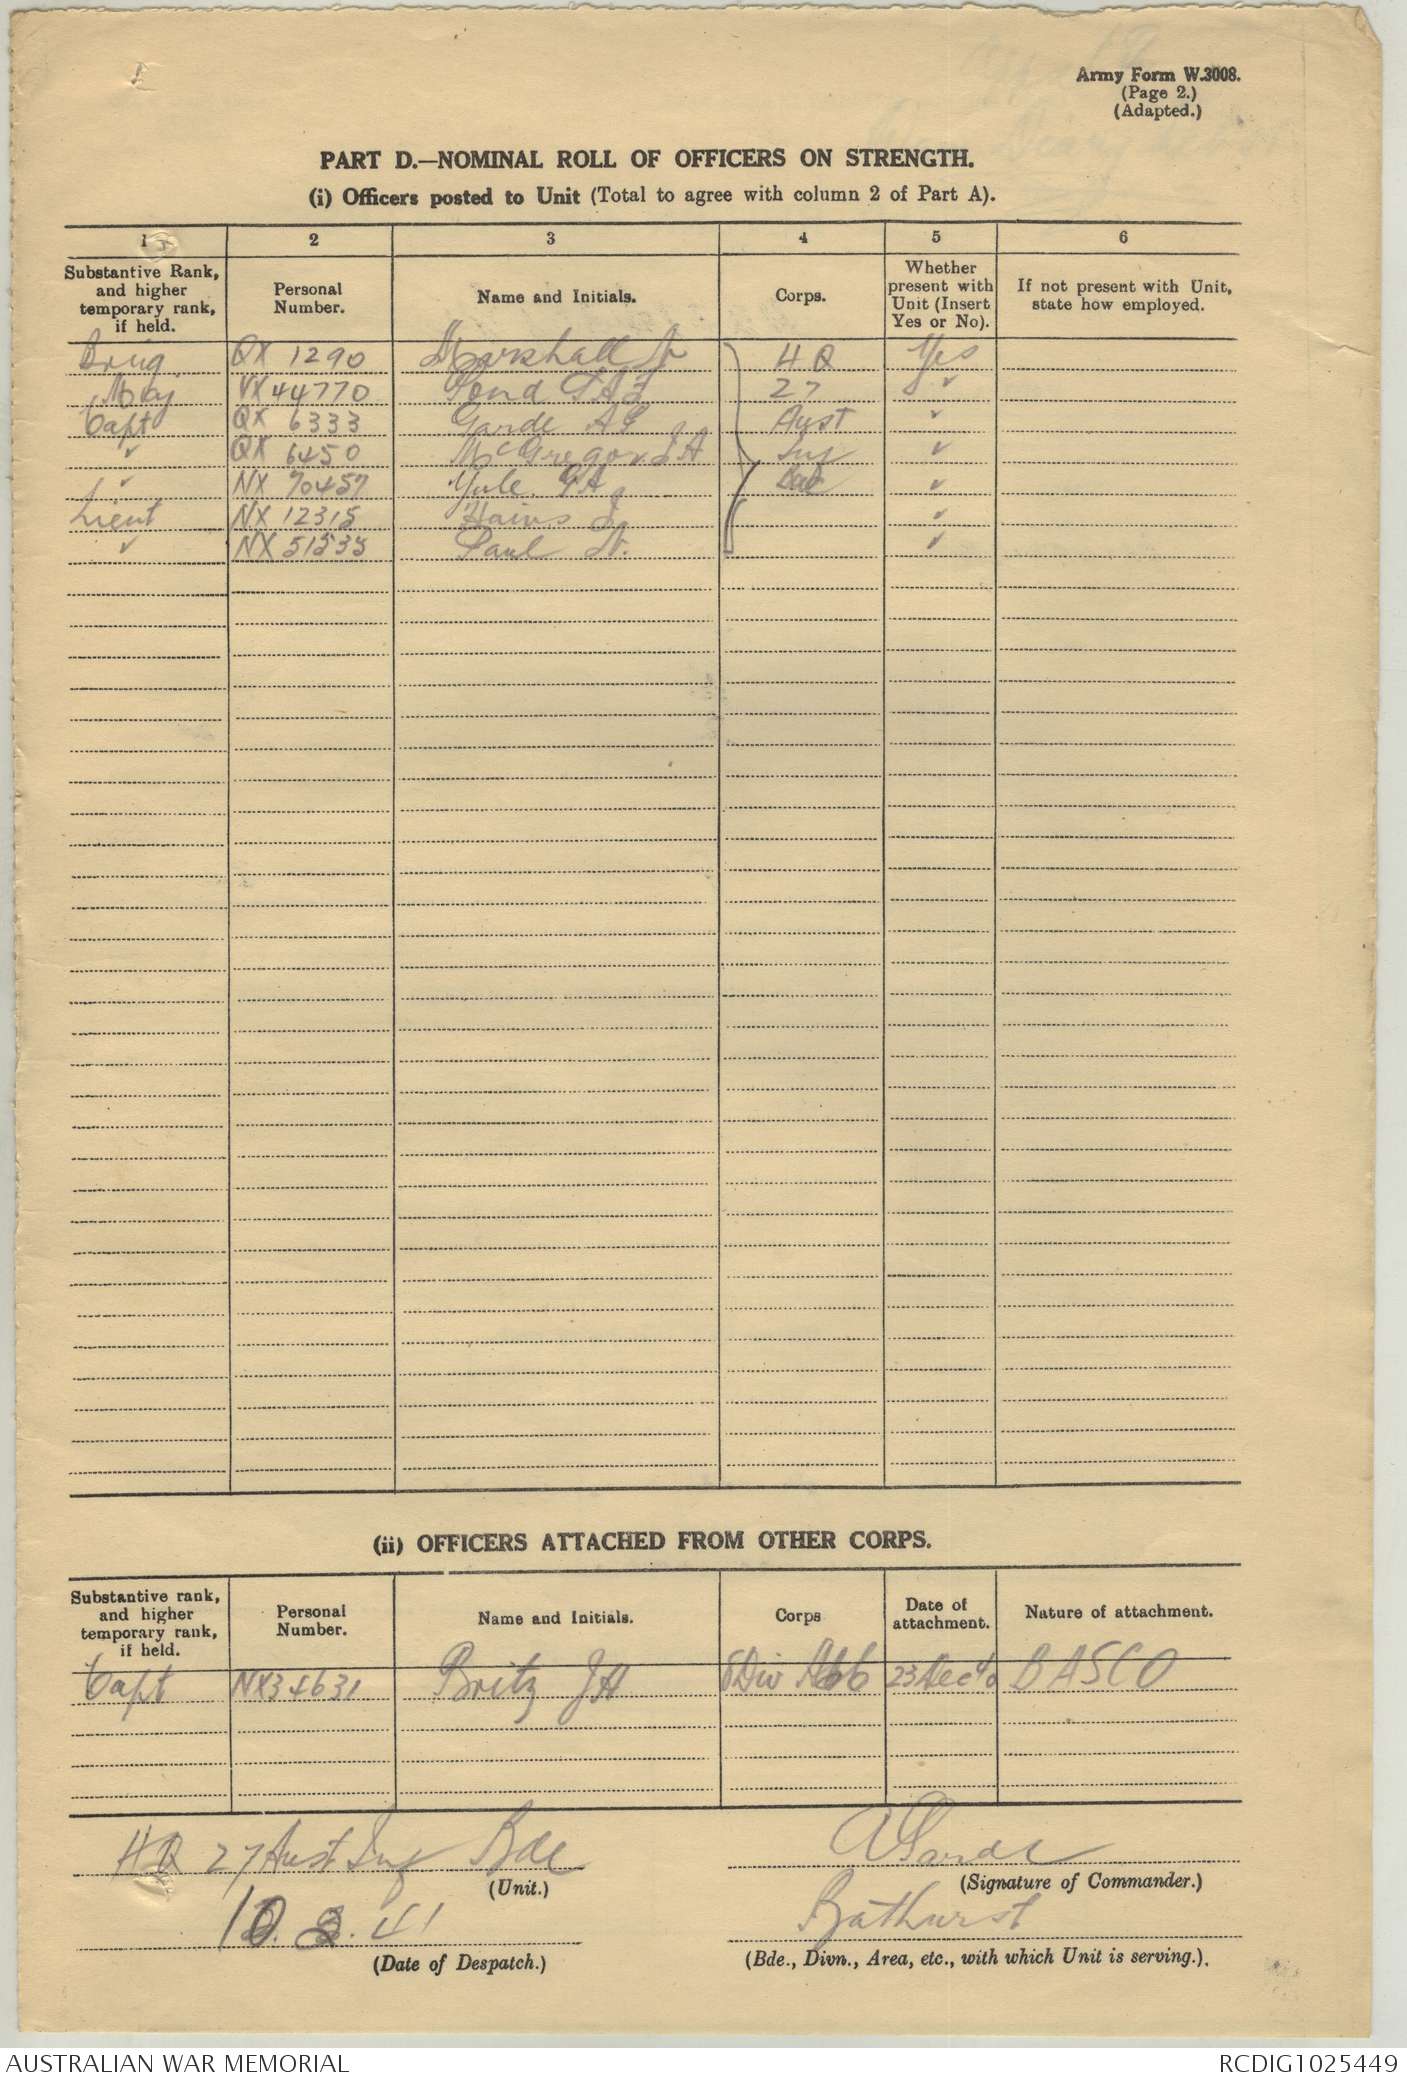 Army Form W.3008.
(Page 2.)
(Adapted.)
PART D.—NOMINAL ROLL OF OFFICERS ON STRENGTH.
(i) Officers posted to Unit (Total to agree with column 2 of Part A).
1 2 3 4 5 6
Substantive Rank, and higher temporary rank, if held.
Personal Number.
Name and Initials.
Corps.
Whether present with Unit (Insert Yes or No).
If not present with Unit, state how employed.
Brig. QX 1290 Marshall N HQ Yes
Maj VX 44770 Pond SAF 27 ✓
Capt QX 6333 Garde AG Aust ✓
✓ QX 6450 McGregor JA Inf ✓
✓ NX 70457 Yule GA Bde ✓
Lieut NX 12315 Hains J ✓
✓ NX 51535 Paul ✓
(ii) OFFICERS ATTACHED FROM OTHER CORPS.
Substantive rank, and higher temporary rank, if held.
Personal Number.
Name and Initials.
Corps
Date of attachment.
Nature of attachment.
Capt NX34631 Britz JH 8 Div 23 Dec 40 BASCO
HQ 27 Aust Inf Bde
(Unit.)
AGarde
(Signature of Commander.)
10. 41
(Date of Despatch.)
Bathurst
(Bde., Divn., Area, etc., with which Unit is serving.).
AUSTRALIAN WAR MEMORIAL
RCDIG1025449